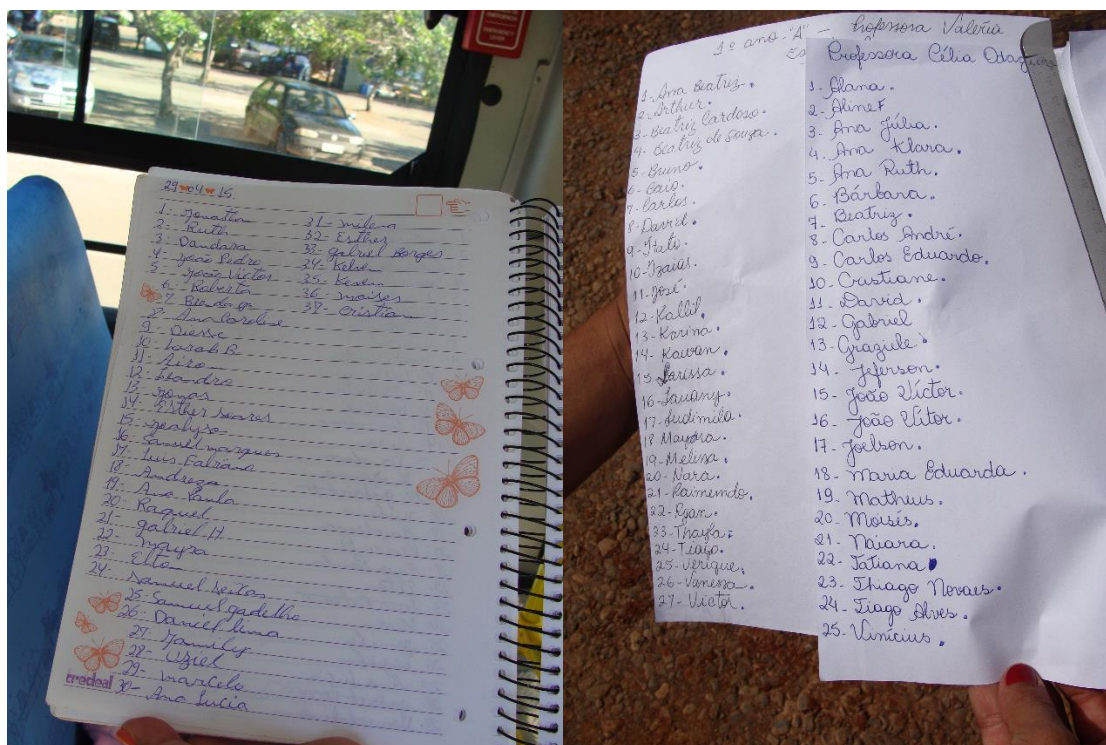 EMERGENCY
29 04 15
1- Jonathan
2- Ruth
3- Dandara
4- João Pedro
5- João Victor
6- Roberta
7
8- Ana Caroline
9-
10- Sarah B.
11-
12- Leandro
13- Jonas
14- Esther Soares
15-
16- Samuel marques
17- Luis Fabiano
18- Andreza
19- Ana Paula
20- Raquel
21- gabriel H
22- mayra
23-
24- Samuel
25- Samuel gadelho
26- Daniel lima
27-
28- Uziel
29- marcelo
30- Ana Lucia
31- milena
32- Esther
33- gabriel Borges
34-
35-
36- moises
37- cristian
credeal
1º ano "A" - Professora Valeria
1- Ana Beatriz.
2- Arthur.
3- Beatriz Cardoso.
4- Beatriz de Souza.
5- Bruno.
6- Caio.
7- Carlos.
8- David.
9- Ítalo.
10- Izaias.
11- José.
12- Kallil.
13- Karina.
14- Kauan.
15 Larissa.
16- Lauany.
17- Ludimila.
18 Mayara.
19- Melissa.
20- Nara.
21- Raimundo.
22- Ryan.
23- Thayla.
24- Tiago.
25-
26- Vanessa.
27- Victor.
Professora Célia
1- Alana.
2- Aline F
3- Ana Júlia.
4- Ana Klara.
5- Ana Ruth.
6- Bárbara.
7- Beatriz.
8- Carlos André.
9- Carlos Eduardo.
10- Cristiane.
11- David.
12- Gabriel
13- Graziele.
14- Jeferson.
15- João Víctor.
16- João Vitor.
17- Joelson.
18- Maria Eduarda.
19- Matheus.
20- Moisés.
21- Naiara.
22- Tatiana
23- Thiago Novaes.
24- Tiago Alves.
25- Vinícius.